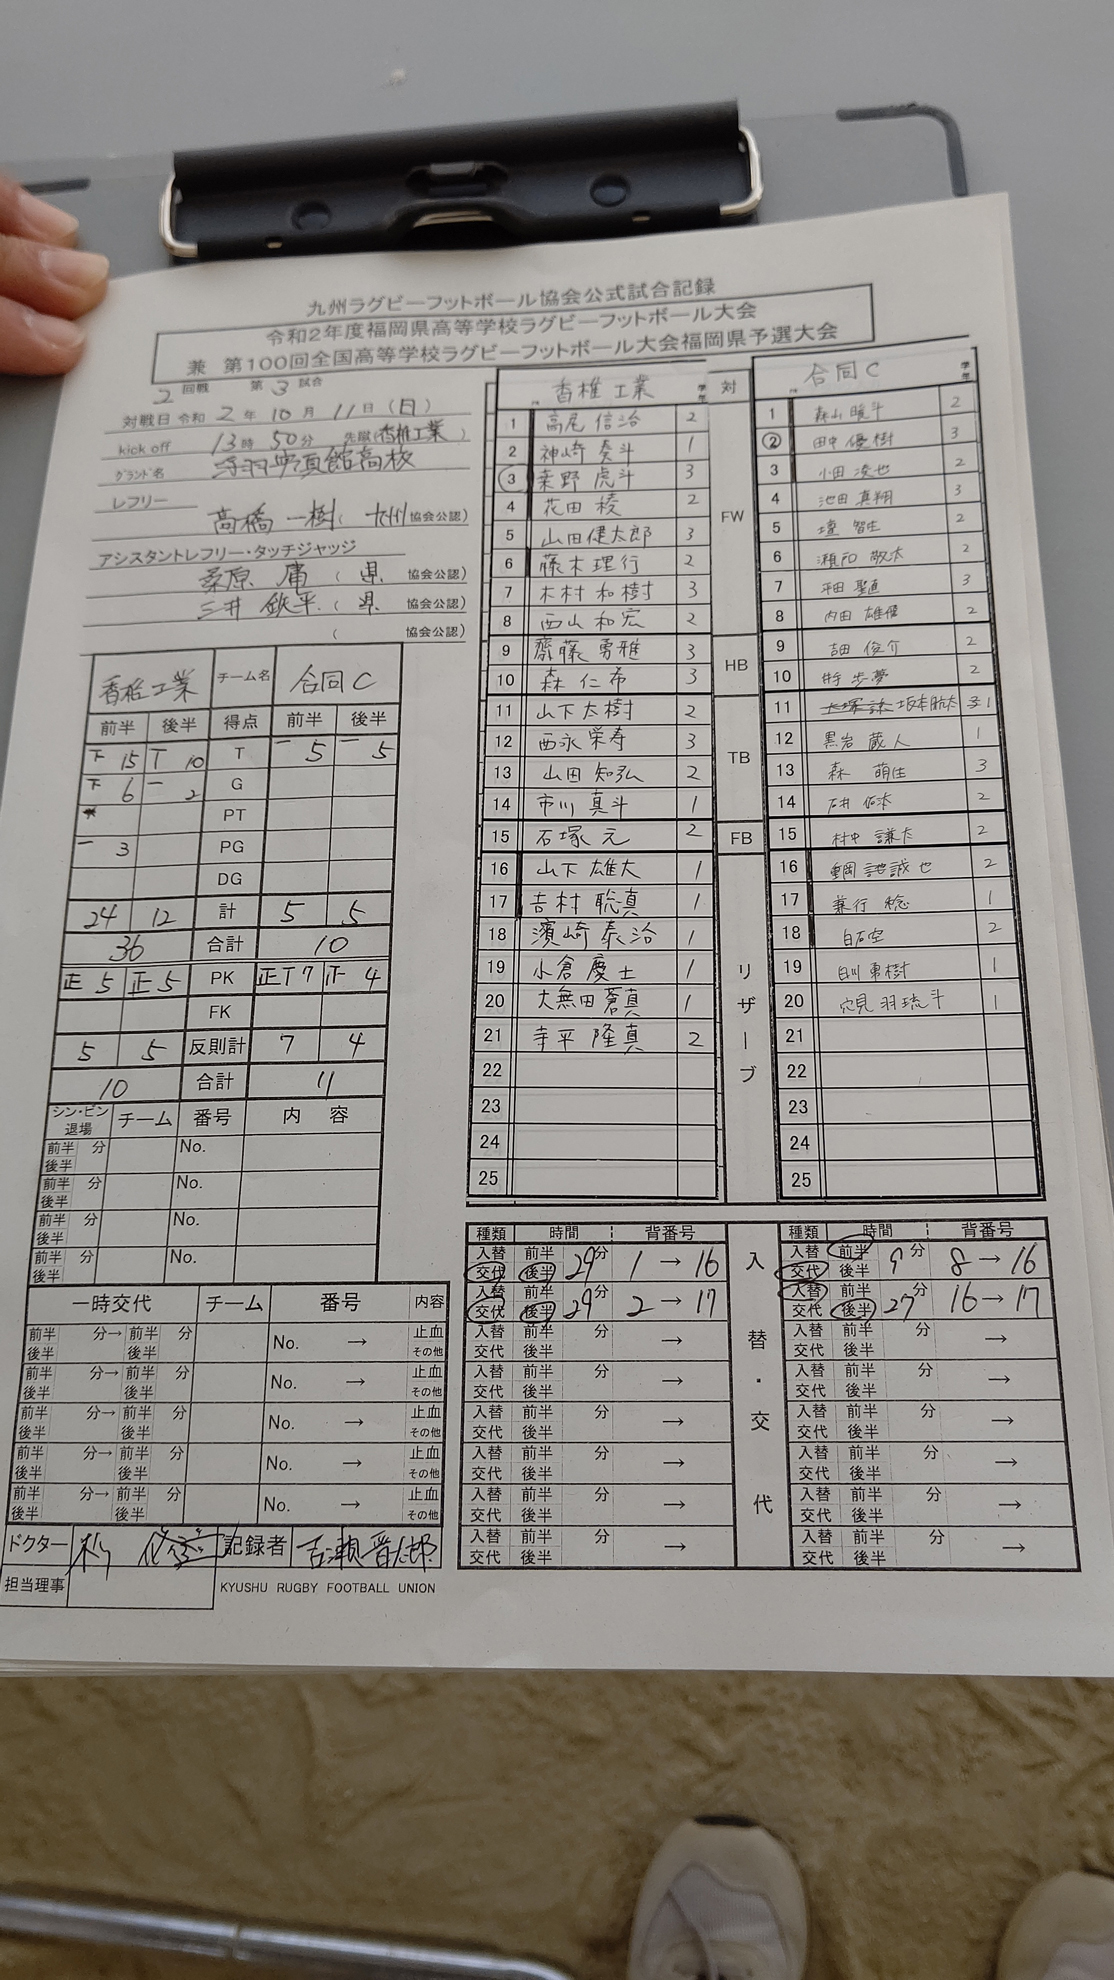 九州ラグビーフットボール協会公式試合記録
令和2年度福岡県高等学校ラグビーフットボール大会
兼 第100回全国高等学校ラグビーフットボール大会福岡県予選大会
2 回戦 第 3 試合
対戦日 令和 2 年 10 月 11 日 (日)
kick off 13 時 50 分 先蹴(香椎工業)
グランド名 浮羽究真館高校
レフリー
高橋 一樹 ( 九州 協会公認)
アシスタントレフリー・タッチジャッジ
桑原 庸 ( 県 協会公認)
三井 鉄平 ( 県 協会公認)
( 協会公認)
香椎工業 チーム名 合同C
前半 後半 得点 前半 後半
下 15 T 10 T 一 5 一 5
下 6 一 2 G
PT
一 3 PG
DG
24 12 計 5 5
36 合計 10
正 5 正 5 PK 正T 7 下 4
FK
5 5 反則計 7 4
10 合計 11
シン・ビン 退場 チーム 番号 内 容
前半 分 後半 No.
前半 分 後半 No.
前半 分 後半 No.
前半 分 後半 No.
一時交代 チーム 番号 内容
前半 分→ 前半 分 後半 後半 No. → 止血 その他
前半 分→ 前半 分 後半 後半 No. → 止血 その他
前半 分→ 前半 分 後半 後半 No. → 止血 その他
前半 分→ 前半 分 後半 後半 No. → 止血 その他
前半 分→ 前半 分 後半 後半 No. → 止血 その他
ドクター 記録者 吉瀬晋太郎
担当理事
KYUSHU RUGBY FOOTBALL UNION
香椎工業 学年 対 合同C 学年
1 高尾 信治 2
2 神崎 奏斗 1
3 桒野 虎斗 3
4 花田 稜 2
5 山田健太郎 3
6 藤木理行 2
7 木村和樹 3
8 西山和宏 2
9 齋藤勇雅 3
10 森仁希 3
11 山下太樹 2
12 西永栄寿 3
13 山田知弘 2
14 市川真斗 1
15 石塚元 2
16 山下雄大 1
17 吉村聡真 1
18 濱崎泰治 1
19 小倉慶士 1
20 大無田蒼真 1
21 寺平隆真 2
22
23
24
25
FW
HB
TB
FB
リザーブ
1 森山暖斗 2
2 田中優樹 3
3 小田凌也 2
4 池田真翔 3
5 壇智生 2
6 瀬知敬太 2
7 平田聖直 3
8 内田雄優 2
9 吉田俊介 2
10 歩夢 2
11 大塚 坂本航太 3 1
12 黒岩蔵人 1
13 森萌生 3
14 石井 2
15 村中謙太 2
16 誠也 2
17 兼行稔 1
18 白石空 2
19 白川勇樹 1
20 穴見羽琉斗 1
21
22
23
24
25
種類 時間 背番号 入替・交代 種類 時間 背番号
入替 交代 前半 後半 29分 1 → 16
入替 交代 前半 後半 29分 2 → 17
入替 交代 前半 後半 分 →
入替 交代 前半 後半 分 →
入替 交代 前半 後半 分 →
入替 交代 前半 後半 分 →
入替 交代 前半 後半 分 →
入替 交代 前半 後半 →
入替 交代 前半 後半 9分 8 → 16
入替 交代 前半 後半 27分 16 → 17
入替 交代 前半 後半 分 →
入替 交代 前半 後半 分 →
入替 交代 前半 後半 分 →
入替 交代 前半 後半 分 →
入替 交代 前半 後半 分 →
入替 交代 前半 後半 分 →